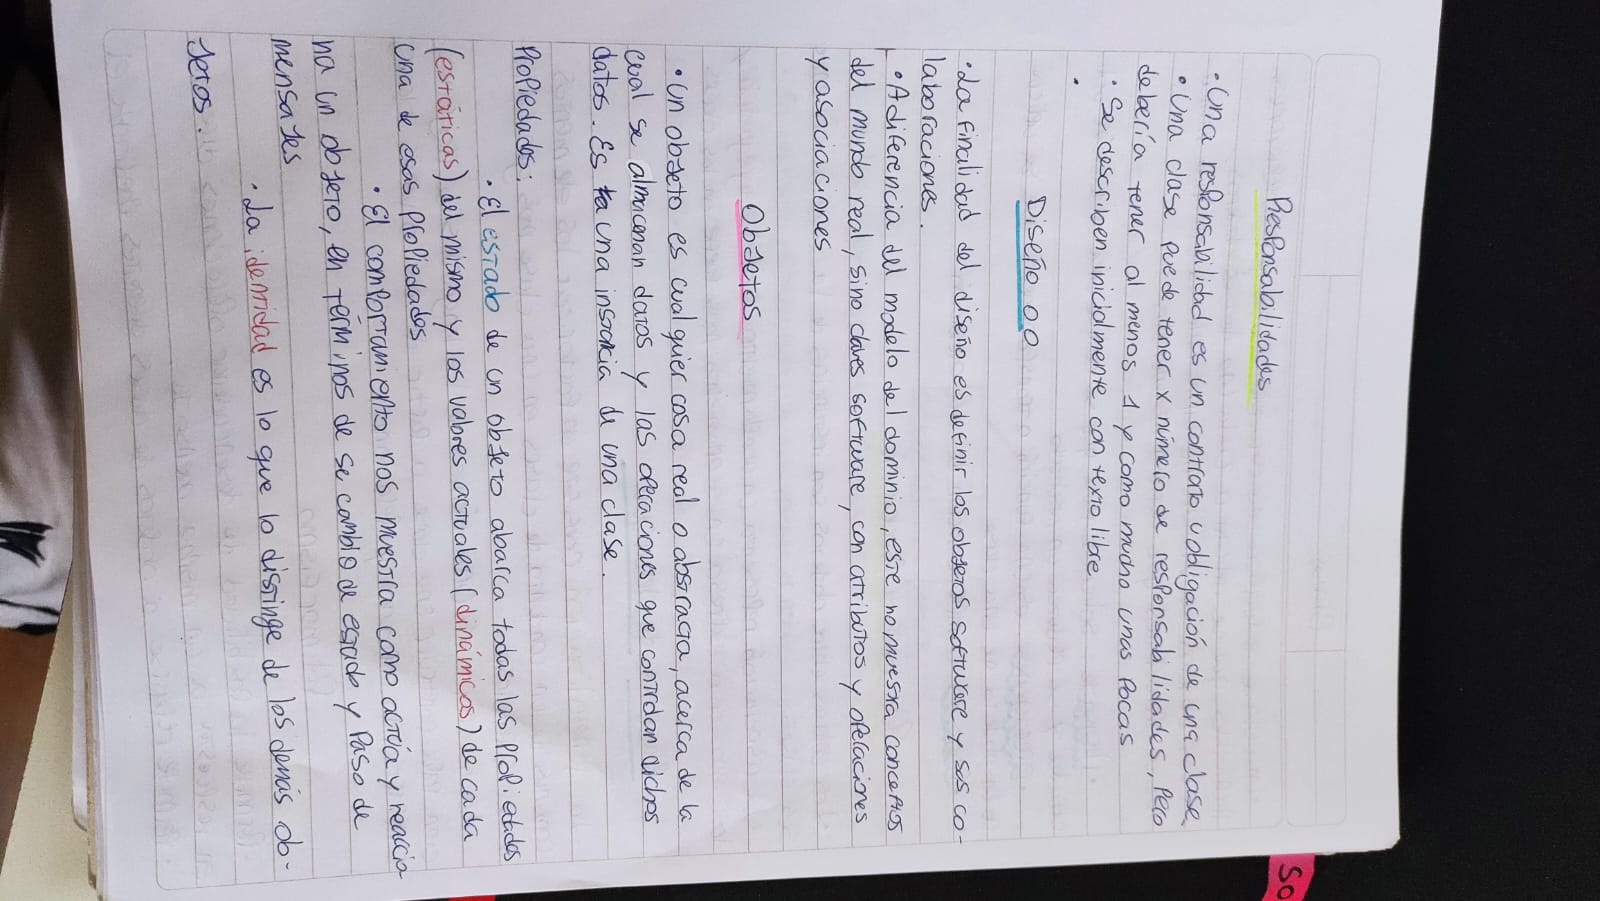 SO
Responsabilidades
• Una responsabilidad es un contrato u obligación de una clase.
• Una clase puede tener x número de responsabilidades, pero
debería tener al menos 1 y como mucho unas pocas
• Se describen inicialmente con texto libre
•
Diseño OO
• La finalidad del diseño es definir los objetos software y sus co-
laboraciones.
• A diferencia del modelo del dominio, este no muestra conceptos
del mundo real, sino claves software, con atributos y operaciones
y asociaciones
Objetos
• Un objeto es cualquier cosa real o abstracta, acerca de la
cual se almacenan datos y las operaciones que controlan dichos
datos. Es una instancia de una clase.
Propiedades:
• El estado de un objeto abarca todas las propiedades
(estáticas) del mismo y los valores actuales (dinámicos) de cada
una de esas propiedades
• El comportamiento nos muestra como actúa y reaccio
na un objeto, en términos de se cambio de estado y paso de
mensajes
• La identidad es lo que lo distinge de los demás ob-
jetos.